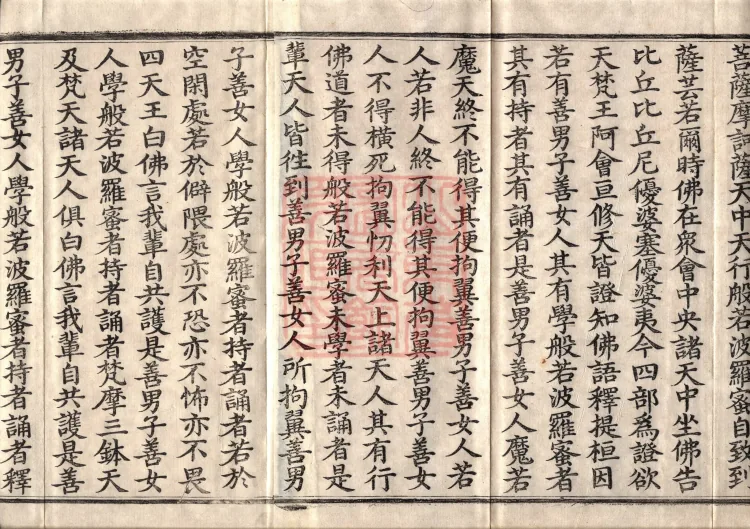 菩薩摩訶薩天中天行般若波羅蜜自致到
薩芸若爾時佛在眾會中央諸天中坐佛告
比丘比丘尼優婆塞優婆夷今四部為證欲
天梵王阿會亘修天皆證知佛語釋提桓因
若有善男子善女人其有學般若波羅蜜者
其有持者其有誦者是善男子善女人魔若
魔天終不能得其便拘翼善男子善女人若
人若非人終不能得其便拘翼善男子善女
人不得橫死拘翼忉利天上諸天人其有行
佛道者未得般若波羅蜜未學者未誦者是
輩天人皆往到善男子善女人所拘翼善男
子善女人學般若波羅蜜者持者誦者若於
空閑處若於僻隈處亦不恐亦不怖亦不畏
四天王白佛言我輩自共護是善男子善女
人學般若波羅蜜者持者誦者梵摩三鉢天
及梵天諸天人俱白佛言我輩自共護是善
男子善女人學般若波羅蜜者持者誦者釋